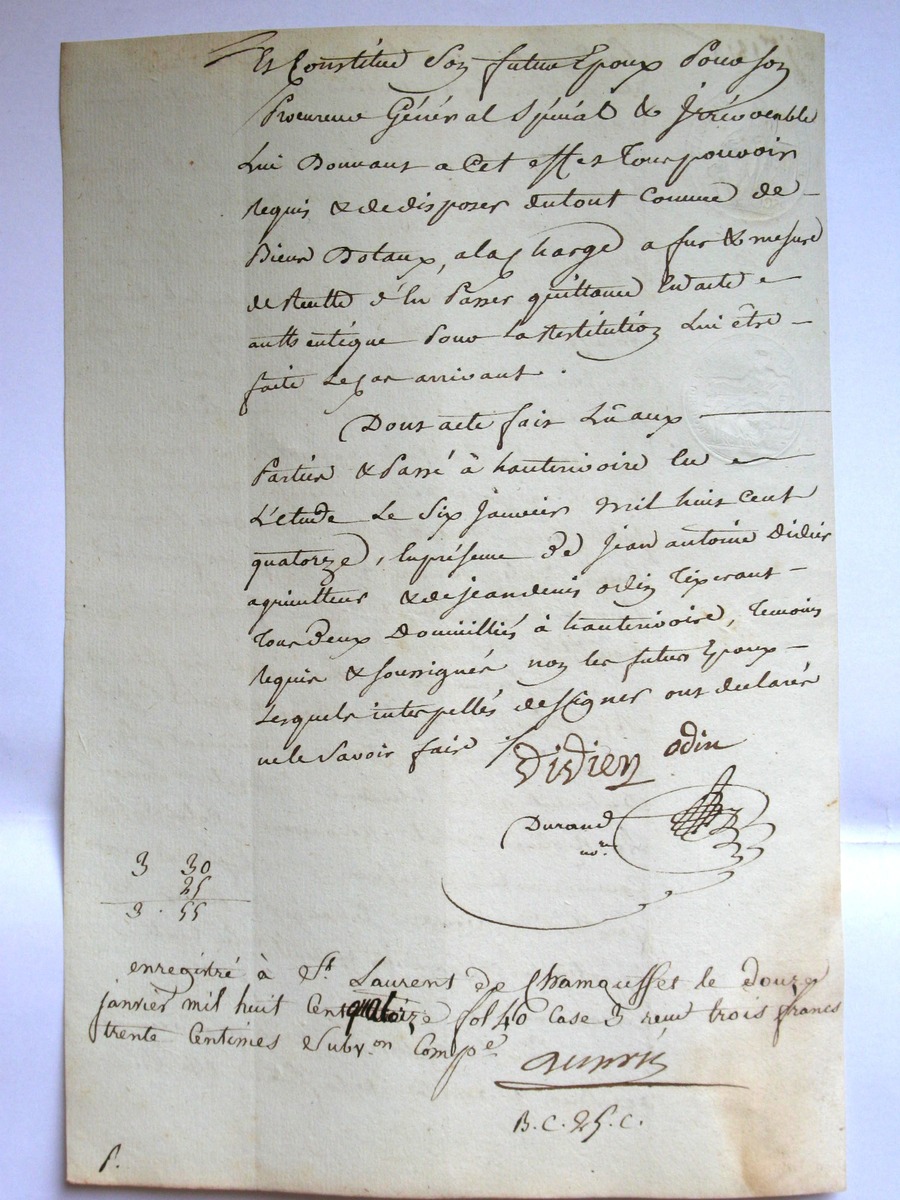 Et Constitue Son futur Epoux Pour son
Procureur Général Spécial & Irrévocable
Lui Donnant a Cet effet Tous pouvoir
requis & de disposer du tout Comme de
Biens Dotaux, a la Charge a fur & mesure
de Recette d'en Passer quittance En acte
authentique Pour la Restitution Lui être
faite le Cas arrivant.
Dont acte fait Lû aux
Parties & Passé à hauterivoire En
L'etude Le Six Janvier Mil huit Cent
quatorze, En présence de Jean antoine Didier
agriculteur & de Jean denis odin Tixerant
Tous deux Domicilliés à hauterivoire, Temoins
requis & soussignés non les futurs Epoux
Lesquels interpellés de Signer ont déclarés
ne le Savoir faire
Didier odin
Durand
no.re
3 30
25
3 . 55
enregistré à St. Laurent de Chamousset le douze
janvier mil huit Cent quatorze fol 40 Case 3 reçu trois francs
trente Centimes & Subv.on Comp.e
B. C. 25. C.